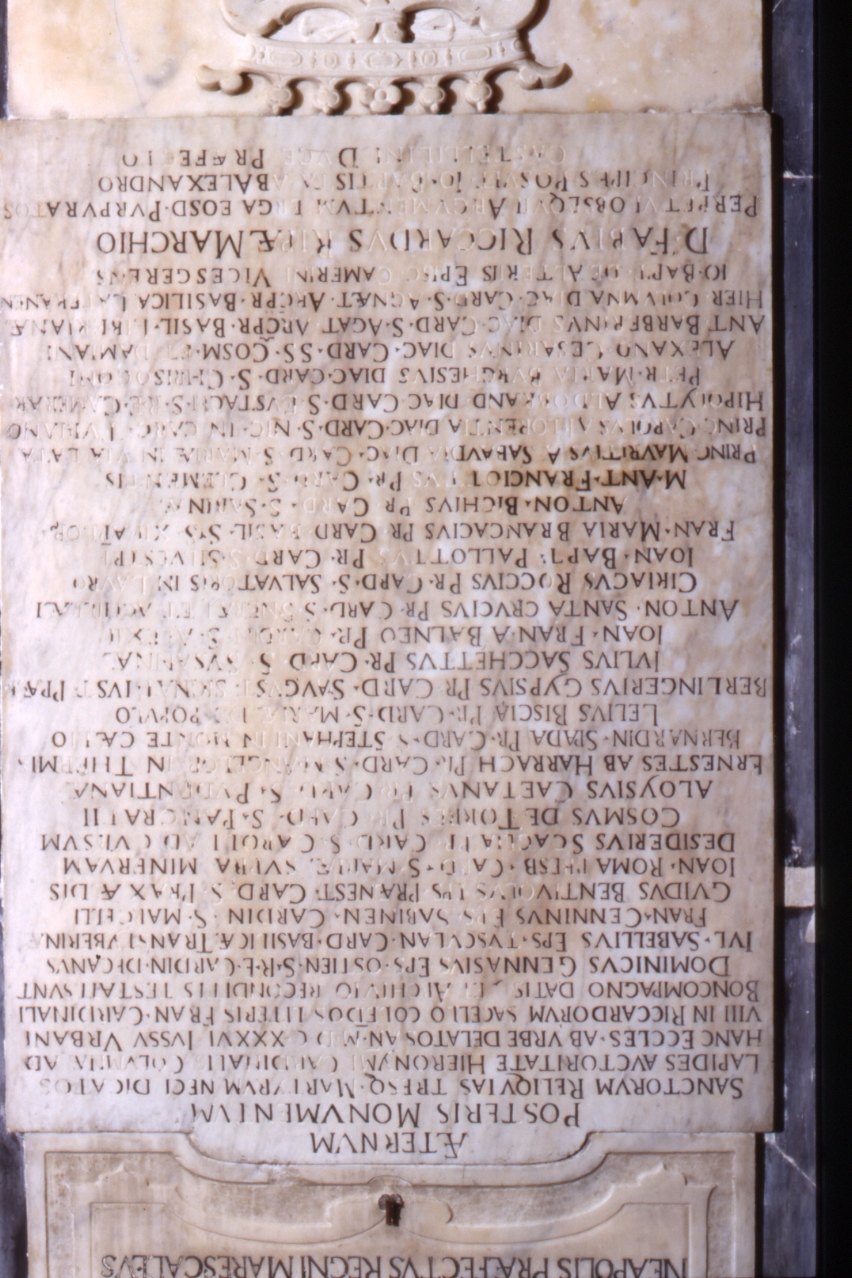 NEAPOLIS PRÆFECTVS REGNI MARESCALLVS
ÆTERNVM
POSTERIS MONVMENTVM
SANCTORVM RELIQVIAS TRESQ. MARTYRVM NECI DICATOS
LAPIDES AVCTORITATE HIERONYMI CARDINALI COLVMNA AD
HANC ECCLES. AB VRBE DELATOS AN. MDCXXXVI IVSSV VRBANI
VIII IN RICCARDORVM SACELLO COLI EIDOS LITTERIS FRAN. CARDINALI
BONCOMPAGNO DATIS ARCHIVIO RECONDITIS TESTATI SVNT
DOMINICVS GENNASIVS EPS. OSTIEN. S.R.E. CARDIN. DECANVS
IVL. SABELLIVS EPS. TVSCVLAN. CARD. BASILICÆ TRANSTVBERINÆ
FRAN. CENNINVS EPS SABINEN. CARDIN. S. MARCELLI
GVIDVS BENTIVOLVS EPS PRÆNEST. CARD. S. PRAXÆDIS
IOAN. ROMA PRESB. CARD. S. MARIÆ SVPRA MINERVAM
DESIDERIVS SCAGLIA PR CARD. S. CAROLI AD CVRSVM
COSMVS DE TORRES PR. CARD. S. PANCRATII
ALOYSIVS CAETANVS PR. CARD. S. PVDENTIANÆ
ERNESTES AB HARRACH PR. CARD. S. M. ANGELOR. IN THERMI.
BERNARDIN. SPADA PR. CARD. S. STEPHANI IN MONTE CÆLIO
LELIVS BISCIA PR. CARD. S. MARIÆ DE POPVLO
BERLINGERIVS GYPSIVS PR CARD. S. AVGVST. PR
IVLIVS SACCHETTVS PR. CARD S. SVSANNAE
IOAN. FRAN. A BALNEO PR. CARDIN. S. ALEXII
ANTON. SANTA CRVCIVS PR CARD. S. NEREI ET ACHILLEI
CIRIACVS ROCCIVS PR. CARD. S. SALVATORIS IN LAVRO
IOAN. BAPT. PALLOTTVS PR. CARD. S. SILVESTRI
FRAN. MARIA BRANCACIVS PR CARD BASIL. SS. XII APLOR.
ANTON. BICHIVS PR CARD. S. SABINÆ
M. ANT. FRANCIOTTVS PR. CARD. S. CLEMENTIS
PRINC. MAVRITIVS A SABAVDIA DIAC. CARD. S. MARIÆ IN VIA LATA
PRINC. CAROLVS FLORENTIA DIAC. CARD. S. NIC. IN CARC. TVLIANO
HIPOLYTVS ALDOBRAND DIAC CARD. S. EVSTACH. S.R.E. CAMERAR.
PETR. MARIA BVRGHESIVS DIAC. CARD. S. CHRISOGONI
ALEXAND CESARINVS DIAC. CARD. SS. COSM. ET DAMIANI
ANT BARBERINVS DIAC. CARD. S. AGAT. ARCPR. BASIL. LIBERIANÆ
HIER. COLVMNA DIAC. CARD. S. AGNÆT. ARCPR. BASILICA LATERANEN
IO. BAPT. DE ALTERIIS EPISC. CAMERINI VICESGERENS
D. FABIVS RICCARDVS RIPÆ MARCHIO
PERPETVI OBSEQVII ARGVMENTVM ERGA EOSD. PVRPVRATOS
PRINCIPES POSVIT IO. BAPTISTA A BALEXANDRO
CASTELLINI DVCE PRÆFECTO